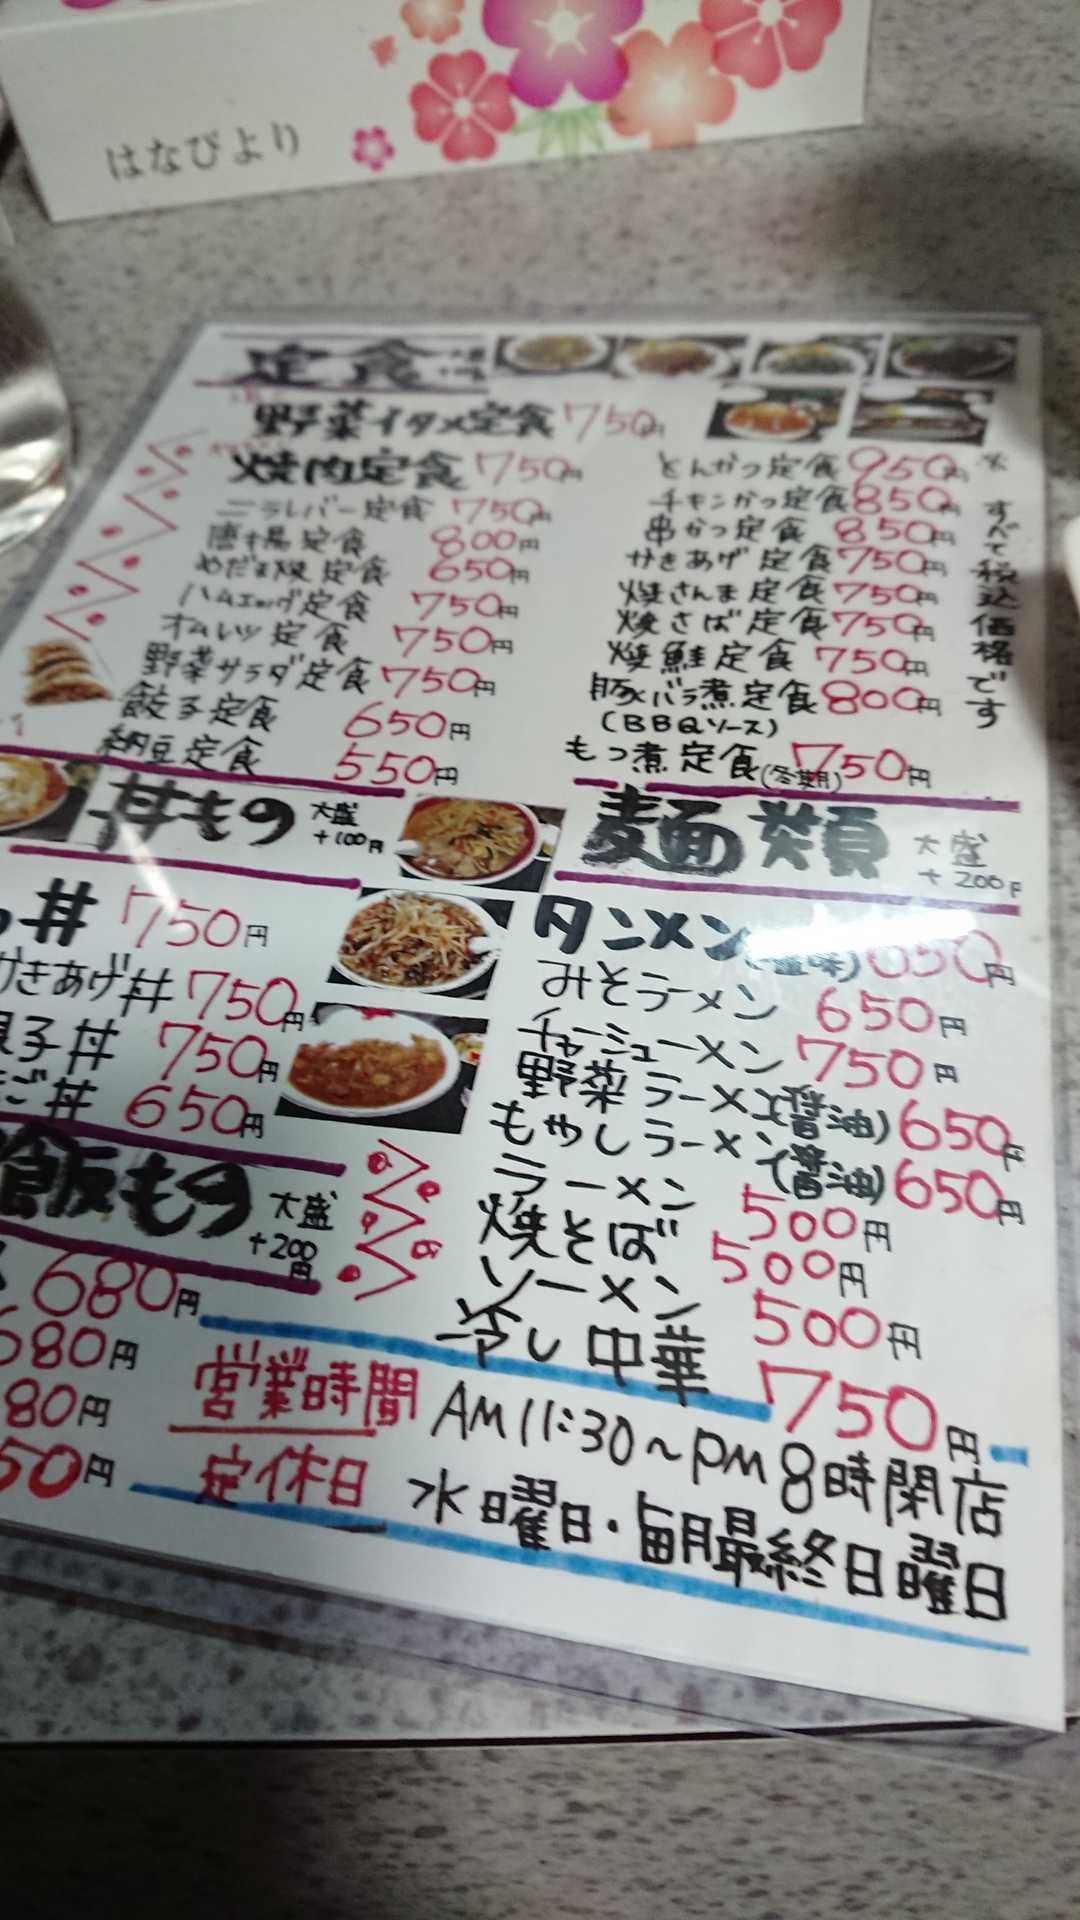 はなびより
定食
野菜イタメ定食 750円
焼肉定食 750円
ニラレバー定食 750円
唐揚定食 800円
めだま焼定食 650円
ハムエッグ定食 750円
オムレツ定食 750円
野菜サラダ定食 750円
餃子定食 650円
納豆定食 550円
とんかつ定食 950円
チキンかつ定食 850円
串かつ定食 850円
かきあげ定食 750円
焼さんま定食 750円
焼さば定食 750円
焼鮭定食 750円
豚バラ煮定食 800円
(BBQソース)
もつ煮定食(冬期) 750円
※すべて税込価格です
丼もの 大盛
+100円
丼 750円
かきあげ丼 750円
子丼 750円
丼 650円
飯もの 大盛
+200円
680円
680円
80円
50円
麺類 大盛
+200円
タンメン(塩味) 650円
みそラーメン 650円
チャーシューメン 750円
野菜ラーメン(醤油) 650円
もやしラーメン(醤油) 650円
ラーメン 500円
焼そば 500円
ソーメン 500円
冷し中華 750円
営業時間 AM11:30~PM8時閉店
定休日 水曜日・毎月最終日曜日